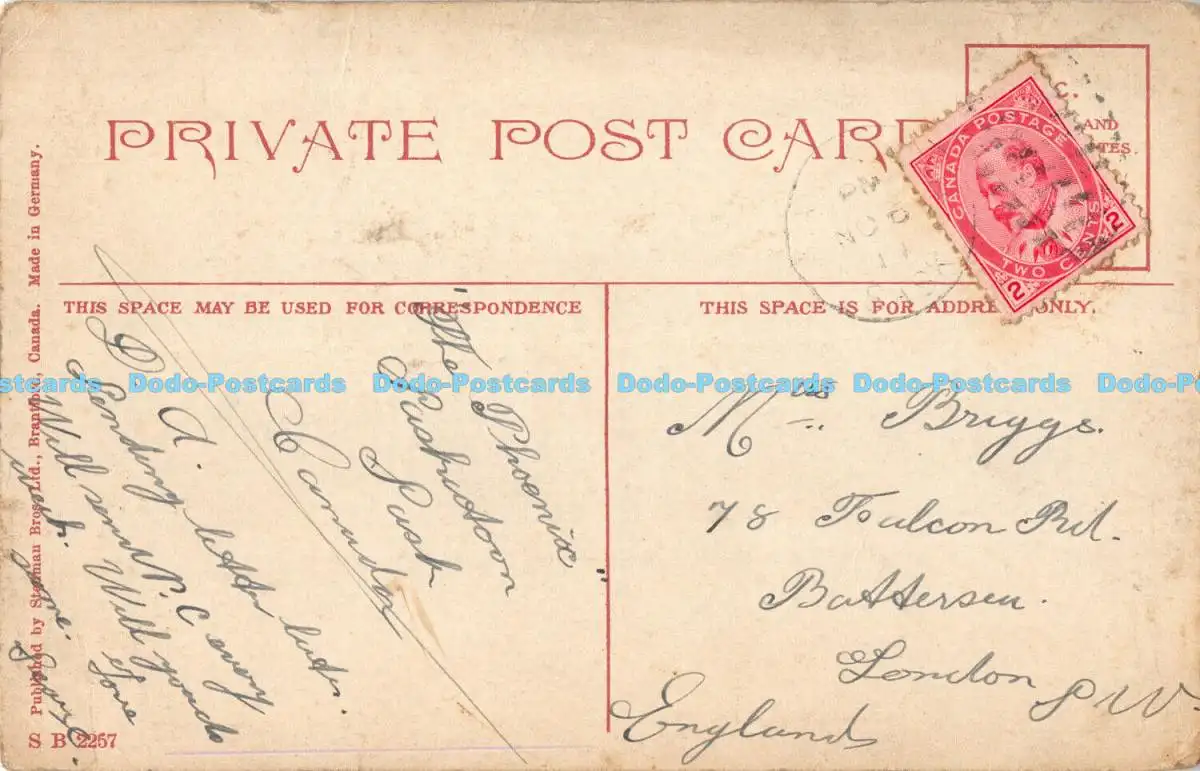 PRIVATE POST CARD
C.
AND
TES
CANADA POSTAGE
TWO CENTS
2 2
PM
NO
THIS SPACE MAY BE USED FOR CORRESPONDENCE
THIS SPACE IS FOR ADDRE ONLY.
"The Phoenix"
Saskatoon
Sask
Canada
D A.
Sending letter later.
Will send P.C every
week. Will you do
same. Love
Mrs Briggs.
78 Falcon Rd.
Battersea.
London S W
England
Published by Stedman Bros. Ltd., Brantford, Canada. Made in Germany.
S B 2257
Dodo-Postcards Dodo-Postcards Dodo-Postcards Dodo-Postcards Dodo-Postcards